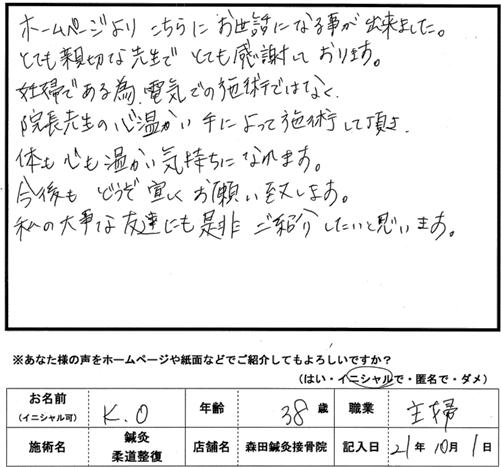 ホームページより こちらに お世話になる事が 出来ました。
とても親切な先生で とても感謝して おります。
妊婦である為、電気での施術ではなく、
院長先生の心温かい 手によって施術して頂き、
体も心も温かい気持ちになれます。
今後も どうぞ 宜しく お願い致します。
私の大事な友達にも是非 ご紹介したいと思います。
※あなた様の声をホームページや紙面などでご紹介してもよろしいですか？
（はい・イニシャルで・匿名で・ダメ）
お名前（イニシャル可） K.O 年齢 38歳 職業 主婦
施術名 鍼灸 柔道整復 店舗名 森田鍼灸接骨院 記入日 21年10月1日